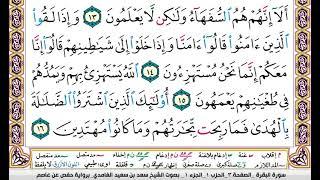 أَلَآ إِنَّهُمْ هُمُ ٱلسُّفَهَآءُ وَلَٰكِن لَّا يَعْلَمُونَ ١٣ وَإِذَا لَقُوا۟
ٱلَّذِينَ ءَامَنُوا۟ قَالُوٓا۟ ءَامَنَّا وَإِذَا خَلَوْا۟ إِلَىٰ شَيَٰطِينِهِمْ قَالُوٓا۟ إِنَّا
مَعَكُمْ إِنَّمَا نَحْنُ مُسْتَهْزِءُونَ ١٤ ٱللَّهُ يَسْتَهْزِئُ بِهِمْ وَيَمُدُّهُمْ
فِى طُغْيَٰنِهِمْ يَعْمَهُونَ ١٥ أُو۟لَٰٓئِكَ ٱلَّذِينَ ٱشْتَرَوُا۟ ٱلضَّلَٰلَةَ
بِٱلْهُدَىٰ فَمَا رَبِحَت تِّجَٰرَتُهُمْ وَمَا كَانُوا۟ مُهْتَدِينَ ١٦
سورة البقرة - الصفحة ٣ - الجزء ١ - الحزب ١ - بصوت الشيخ سعد بن سعيد الغامدي برواية حفص عن عاصم